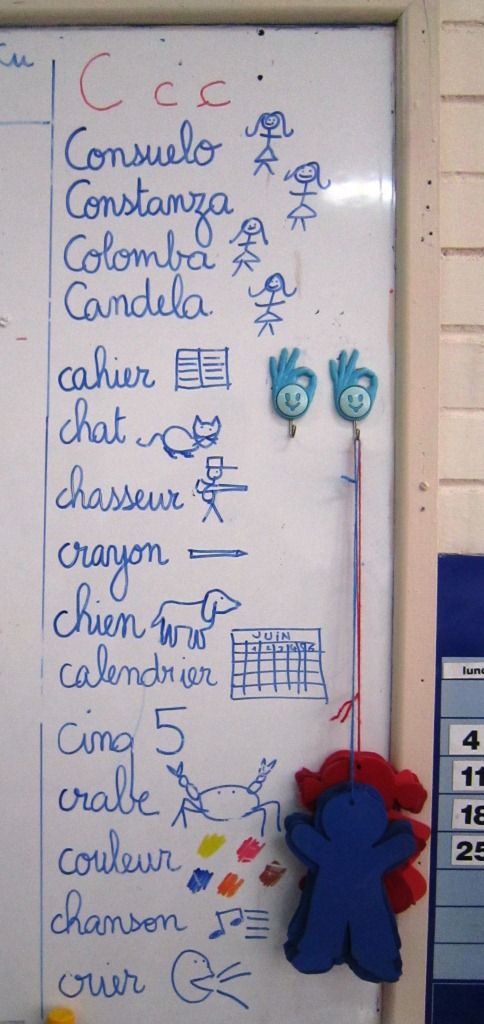 C c c
Consuelo
Constanza
Colomba
Candela.
cahier
chat
chasseur
crayon
chien
JUIN
calendrier
cinq 5
crabe
couleur
chanson
crier
4
11
18
25